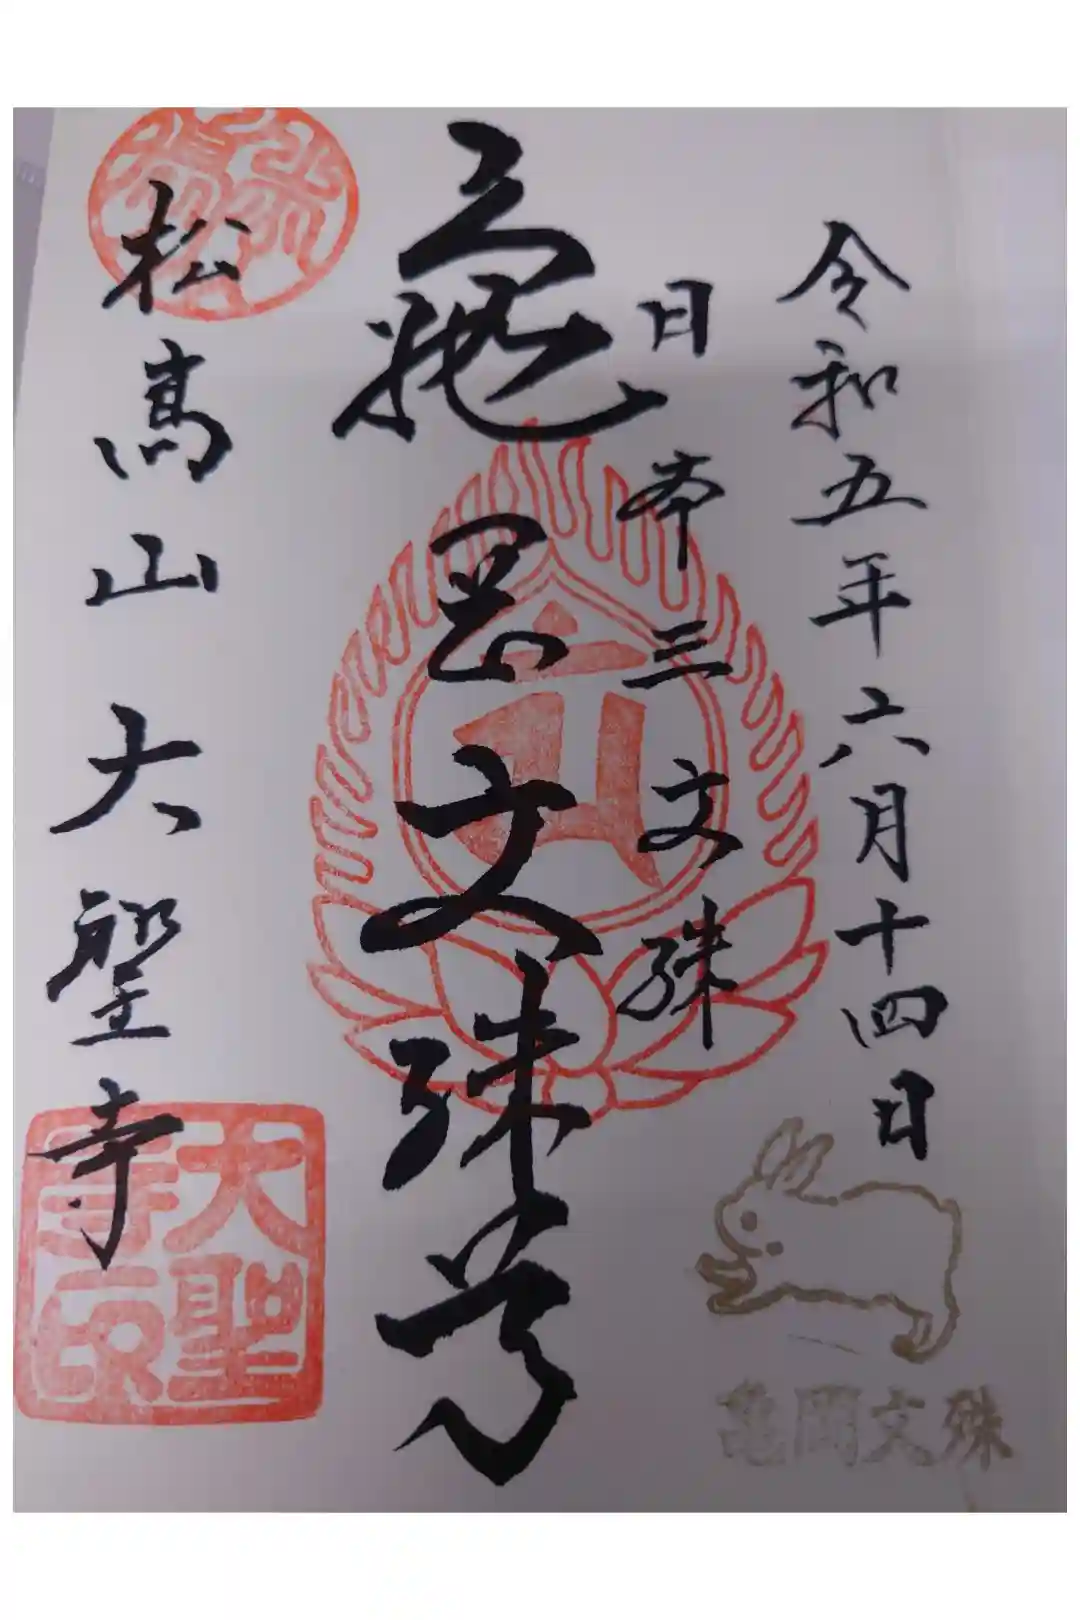 令和五年六月十四日
日本三文殊
亀岡文殊尊
松高山大聖寺
大聖寺印
亀岡文殊